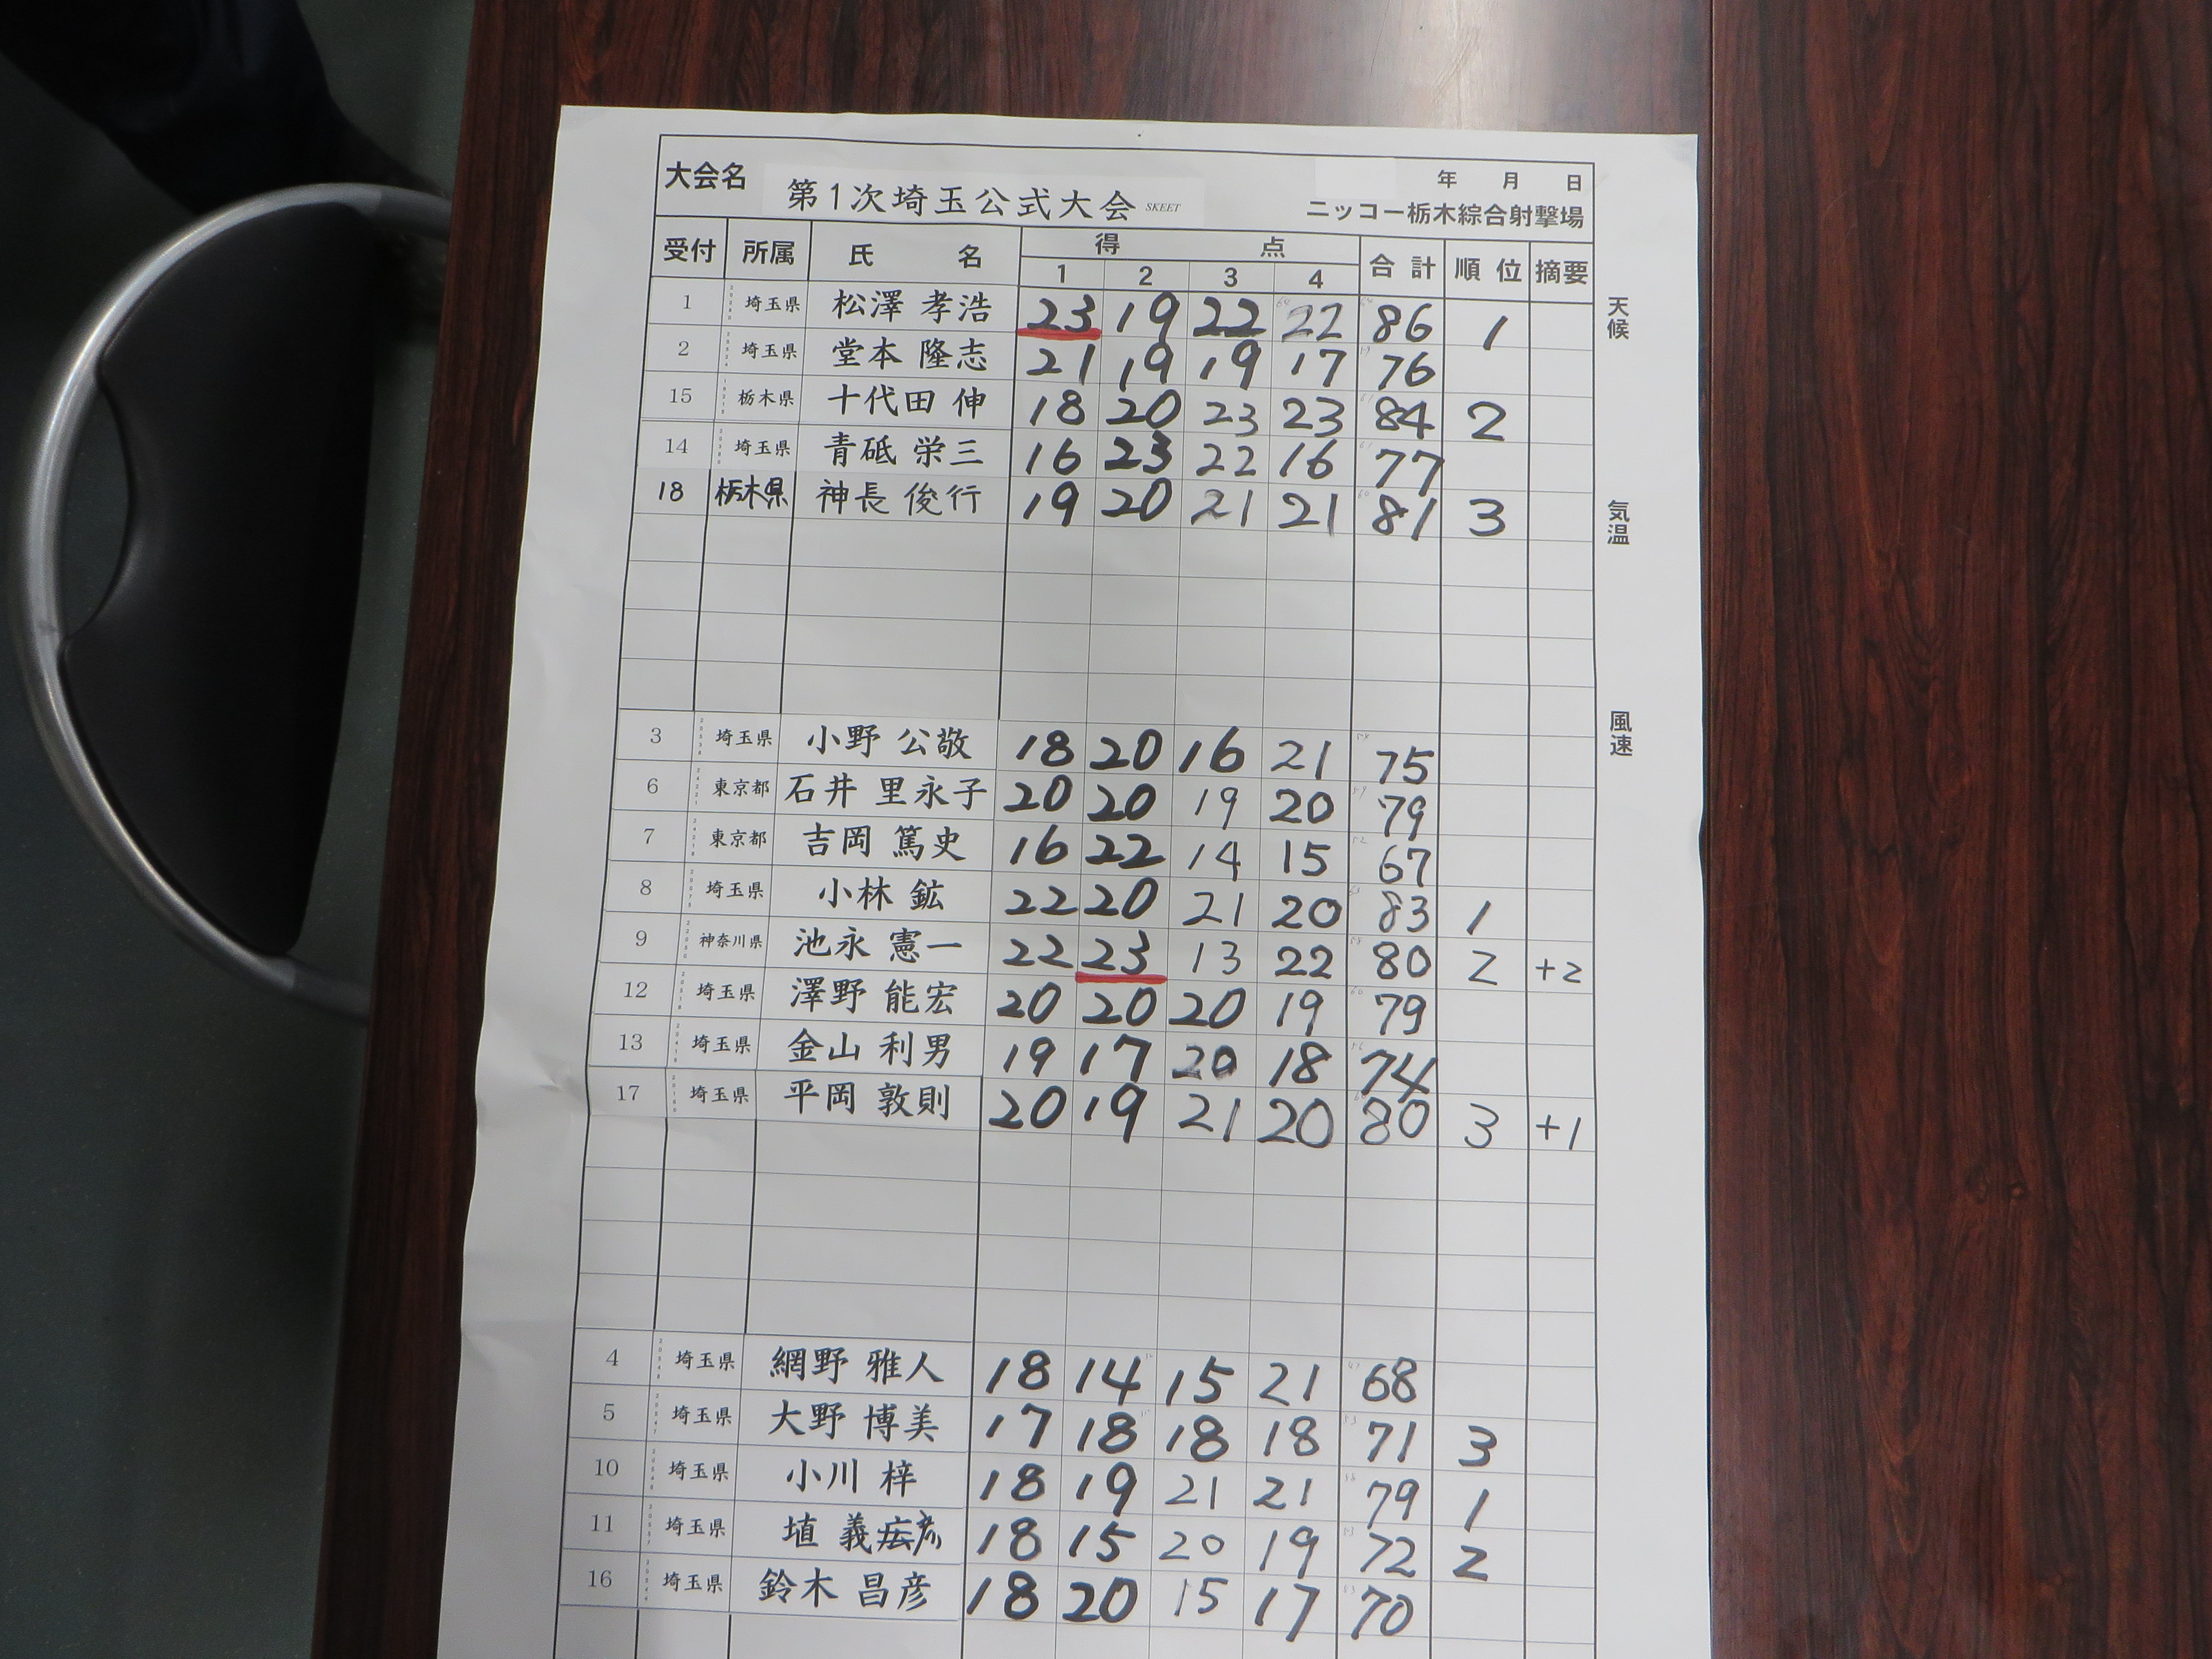 大会名 第1次埼玉公式大会 SKEET 年 月 日
ニッコー栃木綜合射撃場
受付 所属 氏 名 得 点 合計 順位 摘要
1 2 3 4
1 埼玉県 松澤 孝浩 23 19 22 22 86 1
2 埼玉県 堂本 隆志 21 19 19 17 76
15 栃木県 十代田 伸 18 20 23 23 84 2
14 埼玉県 青砥 栄三 16 23 22 16 77
18 栃木県 神長 俊行 19 20 21 21 81 3
3 埼玉県 小野 公敬 18 20 16 21 75
6 東京都 石井 里永子 20 20 19 20 79
7 東京都 吉岡 篤史 16 22 14 15 67
8 埼玉県 小林 鉱 22 20 21 20 83 1
9 神奈川県 池永 憲一 22 23 13 22 80 2 +2
12 埼玉県 澤野 能宏 20 20 20 19 79
13 埼玉県 金山 利男 19 17 20 18 74
17 埼玉県 平岡 敦則 20 19 21 20 80 3 +1
4 埼玉県 網野 雅人 18 14 15 21 68
5 埼玉県 大野 博美 17 18 18 18 71 3
10 埼玉県 小川 梓 18 19 21 21 79 1
11 埼玉県 埴 義彦 18 15 20 19 72 2
16 埼玉県 鈴木 昌彦 18 20 15 17 70
天候
気温
風速